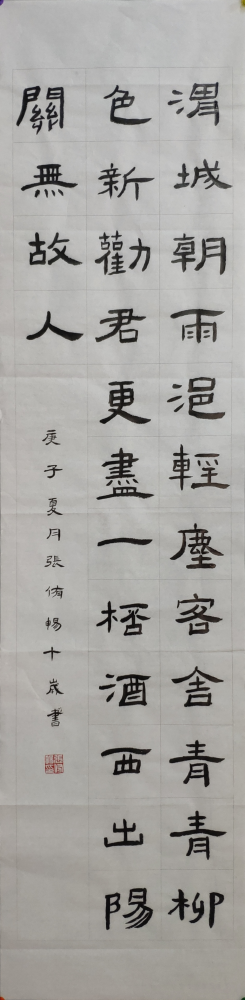 渭城朝雨浥輕塵客舍青青柳
色新勸君更盡一桮酒西出陽
關無故人
庚子夏月張侑暢十歲書